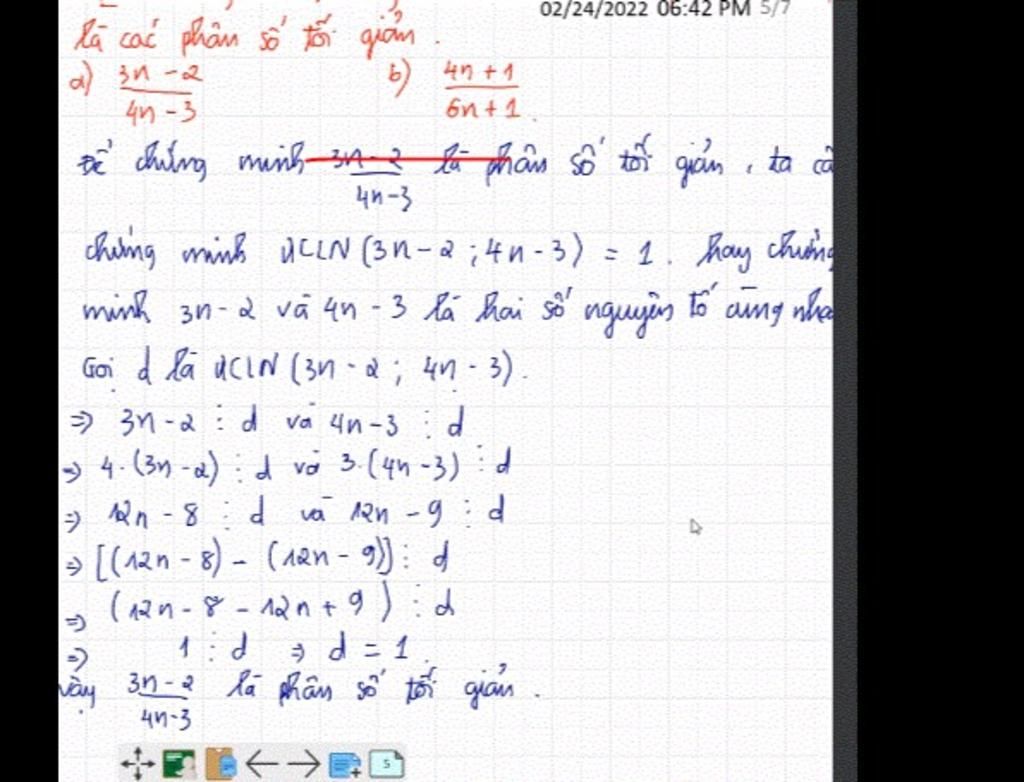 02/24/2022 06:42 PM 5/7
là các phân số tối giản.
a) \frac{3n-2}{4n-3} b) \frac{4n+1}{6n+1}.
Để chứng minh \frac{3n-2}{4n-3} là phân số tối giản, ta
chứng minh ƯCLN (3n-2; 4n-3) = 1. hay chứng
minh 3n-2 và 4n-3 là hai số nguyên tố cùng
Gọi d là ƯCLN (3n-2; 4n-3).
⇒ 3n-2 ⋮ d và 4n-3 ⋮ d
⇒ 4.(3n-2) ⋮ d và 3.(4n-3) ⋮ d
⇒ 12n-8 ⋮ d và 12n-9 ⋮ d
⇒ [(12n-8) - (12n-9)] ⋮ d
⇒ (12n-8-12n+9) ⋮ d
⇒ 1 ⋮ d ⇒ d = 1.
vậy \frac{3n-2}{4n-3} là phân số tối giản.
5